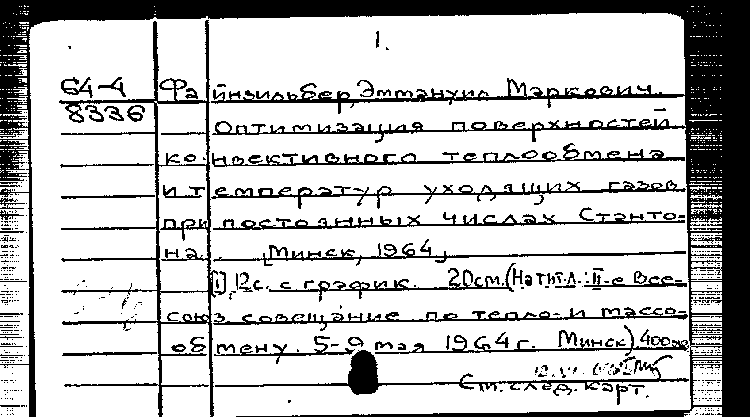 1.
64-4 Файнзильбер, Эммануил Маркович.
8336 Оптимизация поверхностей
конвективного теплообмена
и температур уходящих газов
при постоянных числах Станто-
на. [Минск, 1964]
[1], 12с. с график. 20см. (На тит.л.: II-е Все-
союз совещание по тепло- и массо-
обмену. 5-9 мая 1964 г. Минск) 400экз
См. след. карт.